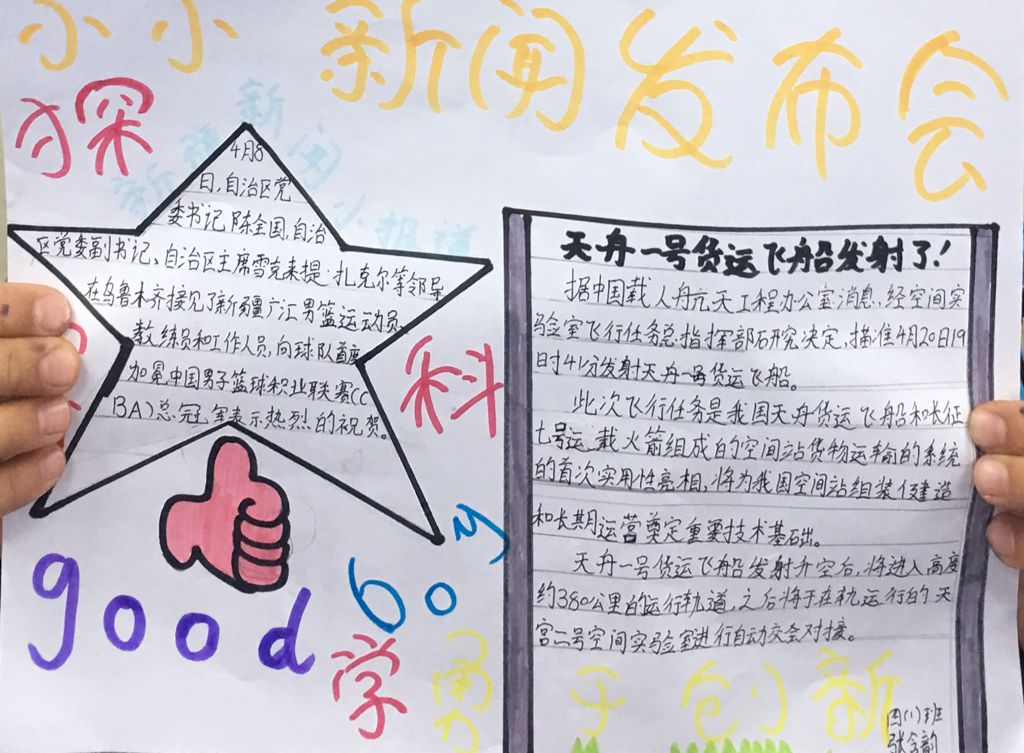 小小新闻发布会
探
新闻
小报道
4月8
日,自治区党
委书记陈全国,自治
区党委副书记、自治区主席雪克来提·扎克尔等领导
在乌鲁木齐接见了新疆广汇男篮运动员、
教练员和工作人员,向球队首度
加冕中国男子篮球职业联赛(C
BA)总冠军表示热烈的祝贺。
科
good boy
学
勇于创新
天舟一号货运飞船发射了!
据中国载人舟亢天工程办公室消息,经空间实
验室飞行任务总指挥部研究决定,描准4月20日19
日时41分发射天舟一号货运飞船。
此次飞行任务是我国天舟货运飞船和长征
七号运载火箭组成的空间站货物运输的系统
的首次实用性亮相,将为我国空间站组装建造
和长期运营奠定重要技术基础。
天舟一号货运飞船发射升空后,将进入高度
约380公里的运行轨道,之后将于在轨运行的天
宫二号空间实验室进行自动交会对接。
四(1)班